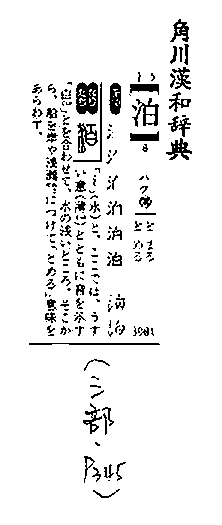 角川漢和辞典
【泊】
8
ハク
とまる
とめる
3981
泊 泊 泊
「氵(水)と、ここでは、うす
い意(薄)とともに音を示す
「白」とを合わせて、水の浅いところ。そこか
ら、船を岸や浅瀬につけて、とめる意味を
あらわす。
(氵部・
P345)